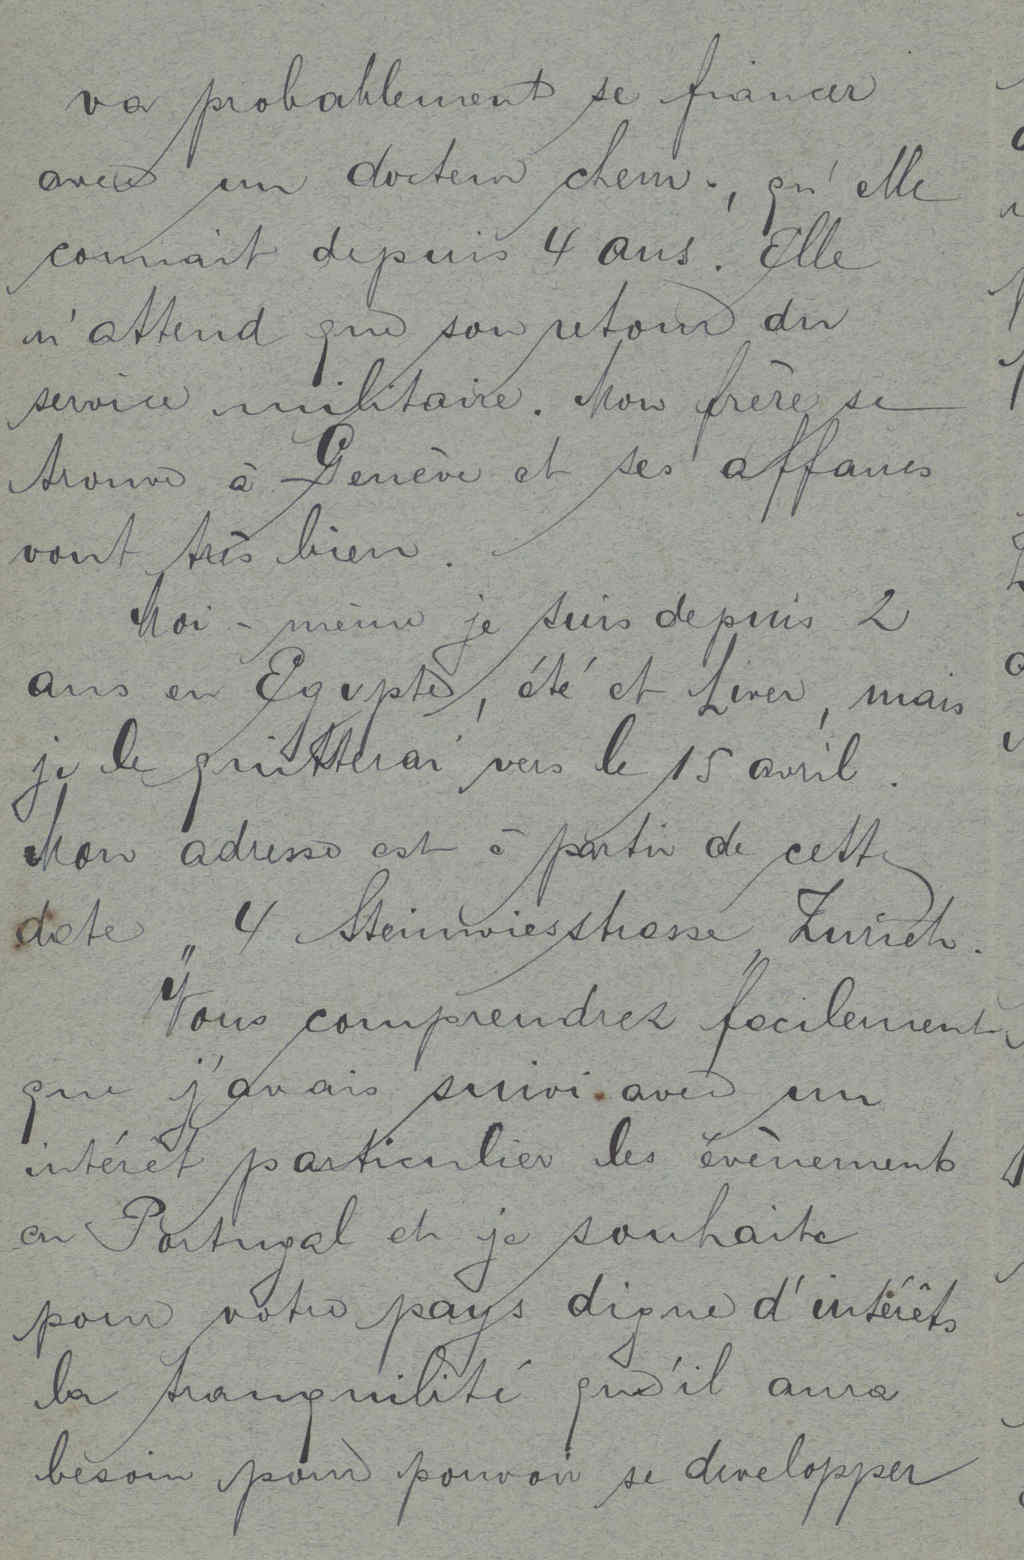 va probablement se fiancer
avec un docteur chem., qu'elle
connait depuis 4 ans. Elle
n'attend que son retour du
service militaire. Mon frère se
trouve à Genève et ses affaires
vont très bien.
Moi-même je suis depuis 2
ans en Egypte, été et hiver, mais
je le quitterai vers le 15 avril.
Mon adresse est à partir de cette
date „ 4 Steinwiesstrasse „ Zurich.
Vous comprendrez facilement
que j'avais suivi avec un
intérêt particulier les évènements
en Portugal et je souhaite
pour votre pays digne d'intérêts
la tranquilité qu'il aura
besoin pour pouvoir se developper